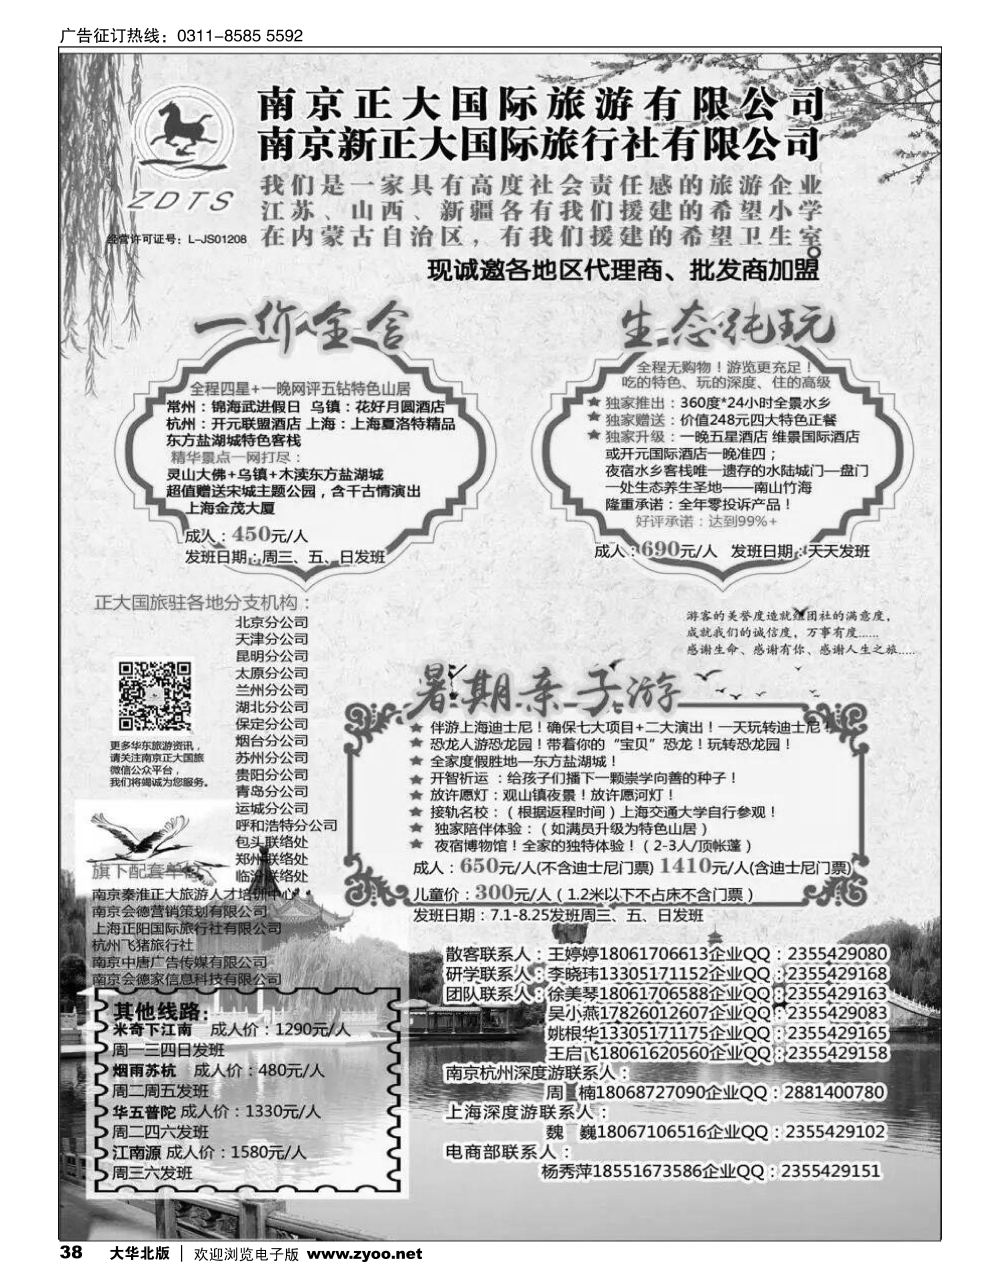 广告征订热线：0311-8585 5592
南京正大国际旅游有限公司
南京新正大国际旅行社有限公司
ZDTS
我们是一家具有高度社会责任感的旅游企业
江苏、山西、新疆各有我们援建的希望小学
经营许可证号：L-JS01208
在内蒙古自治区，有我们援建的希望卫生室。
现诚邀各地区代理商、批发商加盟
一价全含
全程四星+一晚网评五钻特色山居
常州：锦海武进假日 乌镇：花好月圆酒店
杭州：开元联盟酒店 上海：上海夏洛特精品
东方盐湖城特色客栈
精华景点一网打尽：
灵山大佛+乌镇+木渎东方盐湖城
超值赠送宋城主题公园，含千古情演出
上海金茂大厦
成人：450元/人
发班日期：周三、五、日发班
生态纯玩
全程无购物！游览更充足！
吃的特色、玩的深度、住的高级
★ 独家推出：360度*24小时全景水乡
★ 独家赠送：价值248元四大特色正餐
★ 独家升级：一晚五星酒店 维景国际酒店
或开元国际酒店一晚准四；
夜宿水乡客栈唯一遗存的水陆城门—盘门
一处生态养生圣地——南山竹海
隆重承诺：全年零投诉产品！
好评承诺：达到99%+
成人：690元/人 发班日期：天天发班
正大国旅驻各地分支机构：
北京分公司
天津分公司
昆明分公司
太原分公司
兰州分公司
湖北分公司
保定分公司
烟台分公司
苏州分公司
贵阳分公司
青岛分公司
运城分公司
呼和浩特分公司
包头联络处
郑州联络处
临汾联络处
更多华东旅游资讯，
请关注南京正大国旅
微信公众平台，
我们将竭诚为您服务。
旗下配套单位
南京秦淮正大旅游人才培训中心
南京会德营销策划有限公司
上海正阳国际旅行社有限公司
杭州飞猪旅行社
南京中唐广告传媒有限公司
南京会德家信息科技有限公司
游客的美誉度造就组团社的满意度，
成就我们的诚信度，万事有度……
感谢生命、感谢有你、感谢人生之旅……
暑期亲子游
★ 伴游上海迪士尼！确保七大项目+二大演出！一天玩转迪士尼！
★ 恐龙人游恐龙园！带着你的“宝贝”恐龙！玩转恐龙园！
★ 全家度假胜地—东方盐湖城！
★ 开智祈运 ：给孩子们播下一颗崇学向善的种子！
★ 放许愿灯：观山镇夜景！放许愿河灯！
★ 接轨名校：（根据返程时间）上海交通大学自行参观！
★ 独家陪伴体验：（如满员升级为特色山居）
★ 夜宿博物馆！全家的独特体验！（2-3人/顶帐篷）
成人：650元/人(不含迪士尼门票) 1410元/人(含迪士尼门票)
儿童价：300元/人（1.2米以下不占床不含门票）
发班日期：7.1-8.25发班周三、五、日发班
其他线路：
米奇下江南 成人价：1290元/人
周一三四日发班
烟雨苏杭 成人价：480元/人
周二周五发班
华五普陀 成人价：1330元/人
周二四六发班
江南源 成人价：1580元/人
周三六发班
散客联系人：王婷婷18061706613企业QQ：2355429080
研学联系人：李晓玮13305171152企业QQ：2355429168
团队联系人：徐美琴18061706588企业QQ：2355429163
吴小燕17826012607企业QQ：2355429083
姚根华13305171175企业QQ：2355429165
王启飞18061620560企业QQ：2355429158
南京杭州深度游联系人：
周 楠18068727090企业QQ：2881400780
上海深度游联系人：
魏 巍18067106516企业QQ：2355429102
电商部联系人：
杨秀萍18551673586企业QQ：2355429151
38 大华北版 | 欢迎浏览电子版 www.zyoo.net